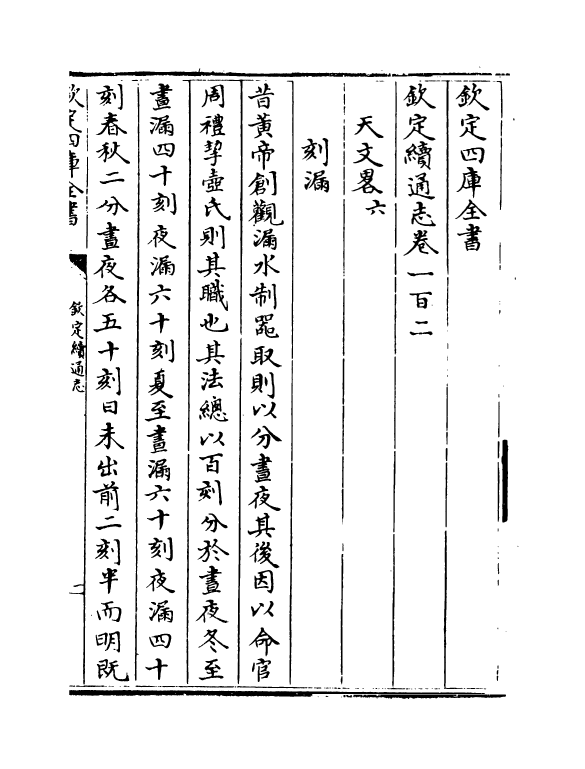 欽定四庫全書
欽定續通志卷一百二
天文畧六
刻漏
昔黃帝創觀漏水制器取則以分晝夜其後因以命官
周禮挈壺氏則其職也其法總以百刻分於晝夜冬至
晝漏四十刻夜漏六十刻夏至晝漏六十刻夜漏四十
刻春秋二分晝夜各五十刻日未出前二刻半而明既
欽定四庫全書
欽定續通志